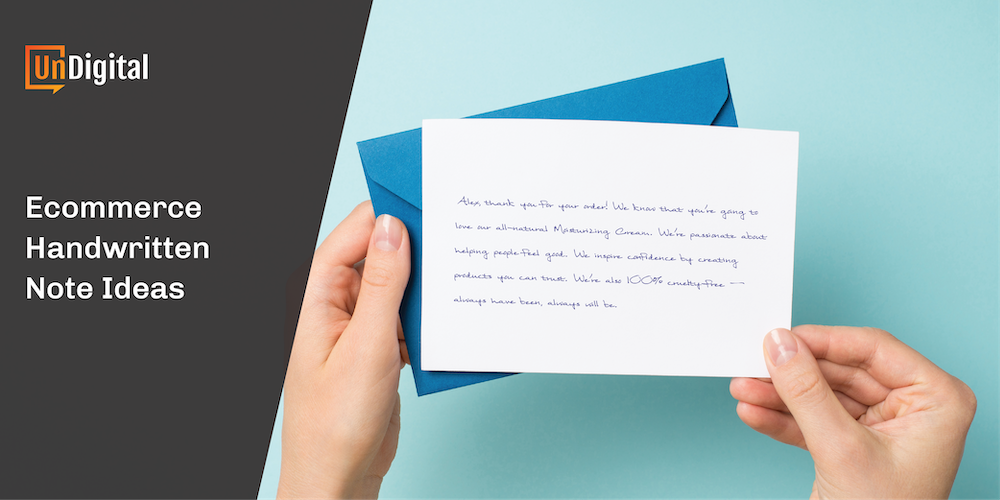 UnDigital
Ecommerce
Handwritten
Note Ideas
Alex, thank you for your order! We know that you're going to
love our all-natural Moisturizing Cream. We're passionate about
helping people feel good. We inspire confidence by creating
products you can trust. We're also 100% cruelty-free —
always have been, always will be.